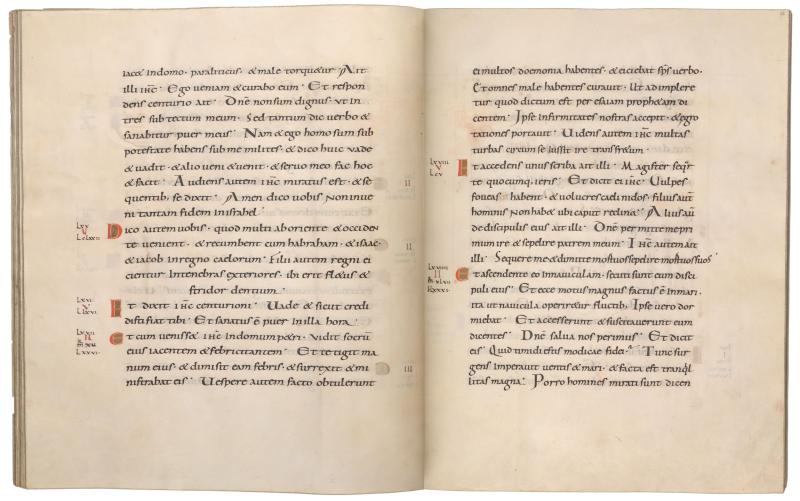 iacet indomo· paraliticus· & male torquetur Ait
illi ihc· Ego veniam & curabo eum· Et respon
dens centurio ait· Dñe non sum dignus· vt in
tres sub tectum meum· Sed tantum dic verbo &
sanabitur puer meus· Nam & ego homo sum sub
potestate habens sub me milites· & dico huic vade
& vadit· & alio veni & venit· & servo meo fac hoc
& facit· Audiens autem ihc miratus est· & se
quentib; se dixit· Amen dico vobis Non inve
ni tantam fidem in israhel·
LXV
V
Dico autem vobis· quod multi ab oriente· & occiden
te venient· & recumbent cum habraham· & isaac·
& iacob in regno caelorum· Filii autem regni ei
cientur Intenebras exteriores· ibi erit fletus &
stridor dentium·
LXVI
V
Et dixit ihc centurioni· Vade & sicut credi
disti fiat tibi· Et sanatus ē puer in illa hora·
LXVII
II
LXXVI
Et cum venisset ihc Indomum petri· Vidit socrū
eius iacentem & febricitantem· Et tetigit ma
num eius· & dimisit eam febris· & surrexit & mi
nistrabat eis· Vespere autem facto obtulerunt
II
II
III
ei multos doemonia habentes· & eiciebat sps verbo·
Et omnes male habentes curavit· Ut ad implere
tur quod dictum est per esaiam prophetam di
centem· Ipse infirmitates nostras accepit· & egro
tationes portavit· Videns autem ihc multas
turbas circum se iussit ire trans fretum·
LXVIII
V
LCV
Et accedens unus scriba ait illi· Magister seqr
te quocumq; ieris· Et dicit ei ihc· Vulpes
foveas habent· & volucres caeli nidos· filius aut̄
hominis Non habet ubi caput reclinet· Alius aū
de discipulis eius ait illi· Dñe permitte me pri
mum ire & sepelire patrem meum· Ihc autem ait
illi· Sequere me & dimitte mortuos sepelire mortuos suos
LXVIIII
II
Et ascendente eo Innaviculam· secuti sunt eum disci
puli eius· Et ecce motus magnus factus ē In mari·
ita ut navicula operiretur fluctib; Ipse vero dor
miebat· Et accesserunt & suscitaverunt eum
dicentes· Dñe salva nos perimus· Et dicit
eis· Quid timidi estis modicae fidei· Tunc sur
gens imperavit ventis & mari· & facta est tranqil
litas magna· Porro homines mirati sunt dicen